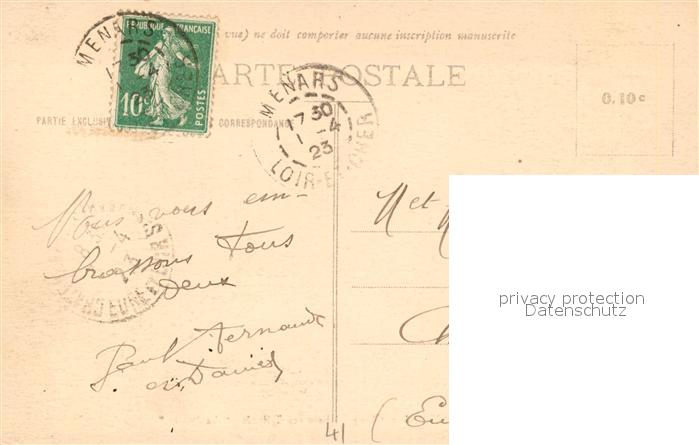 vue) ne doit comporter aucune inscription manuscrite
RÉPUBLIQUE FRANÇAISE
10c
POSTES
CARTE POSTALE
MENARS
MENARS
17 30
1 - 4
23
LOIR-ET-CHER
0.10c
PARTIE EXCLUSIV
CORRESPONDANCE
Nous vous em-
brassons tous
deux
M et M
privacy protection
Datenschutz
Paul, Fernande
et Daniel
(Eu
41